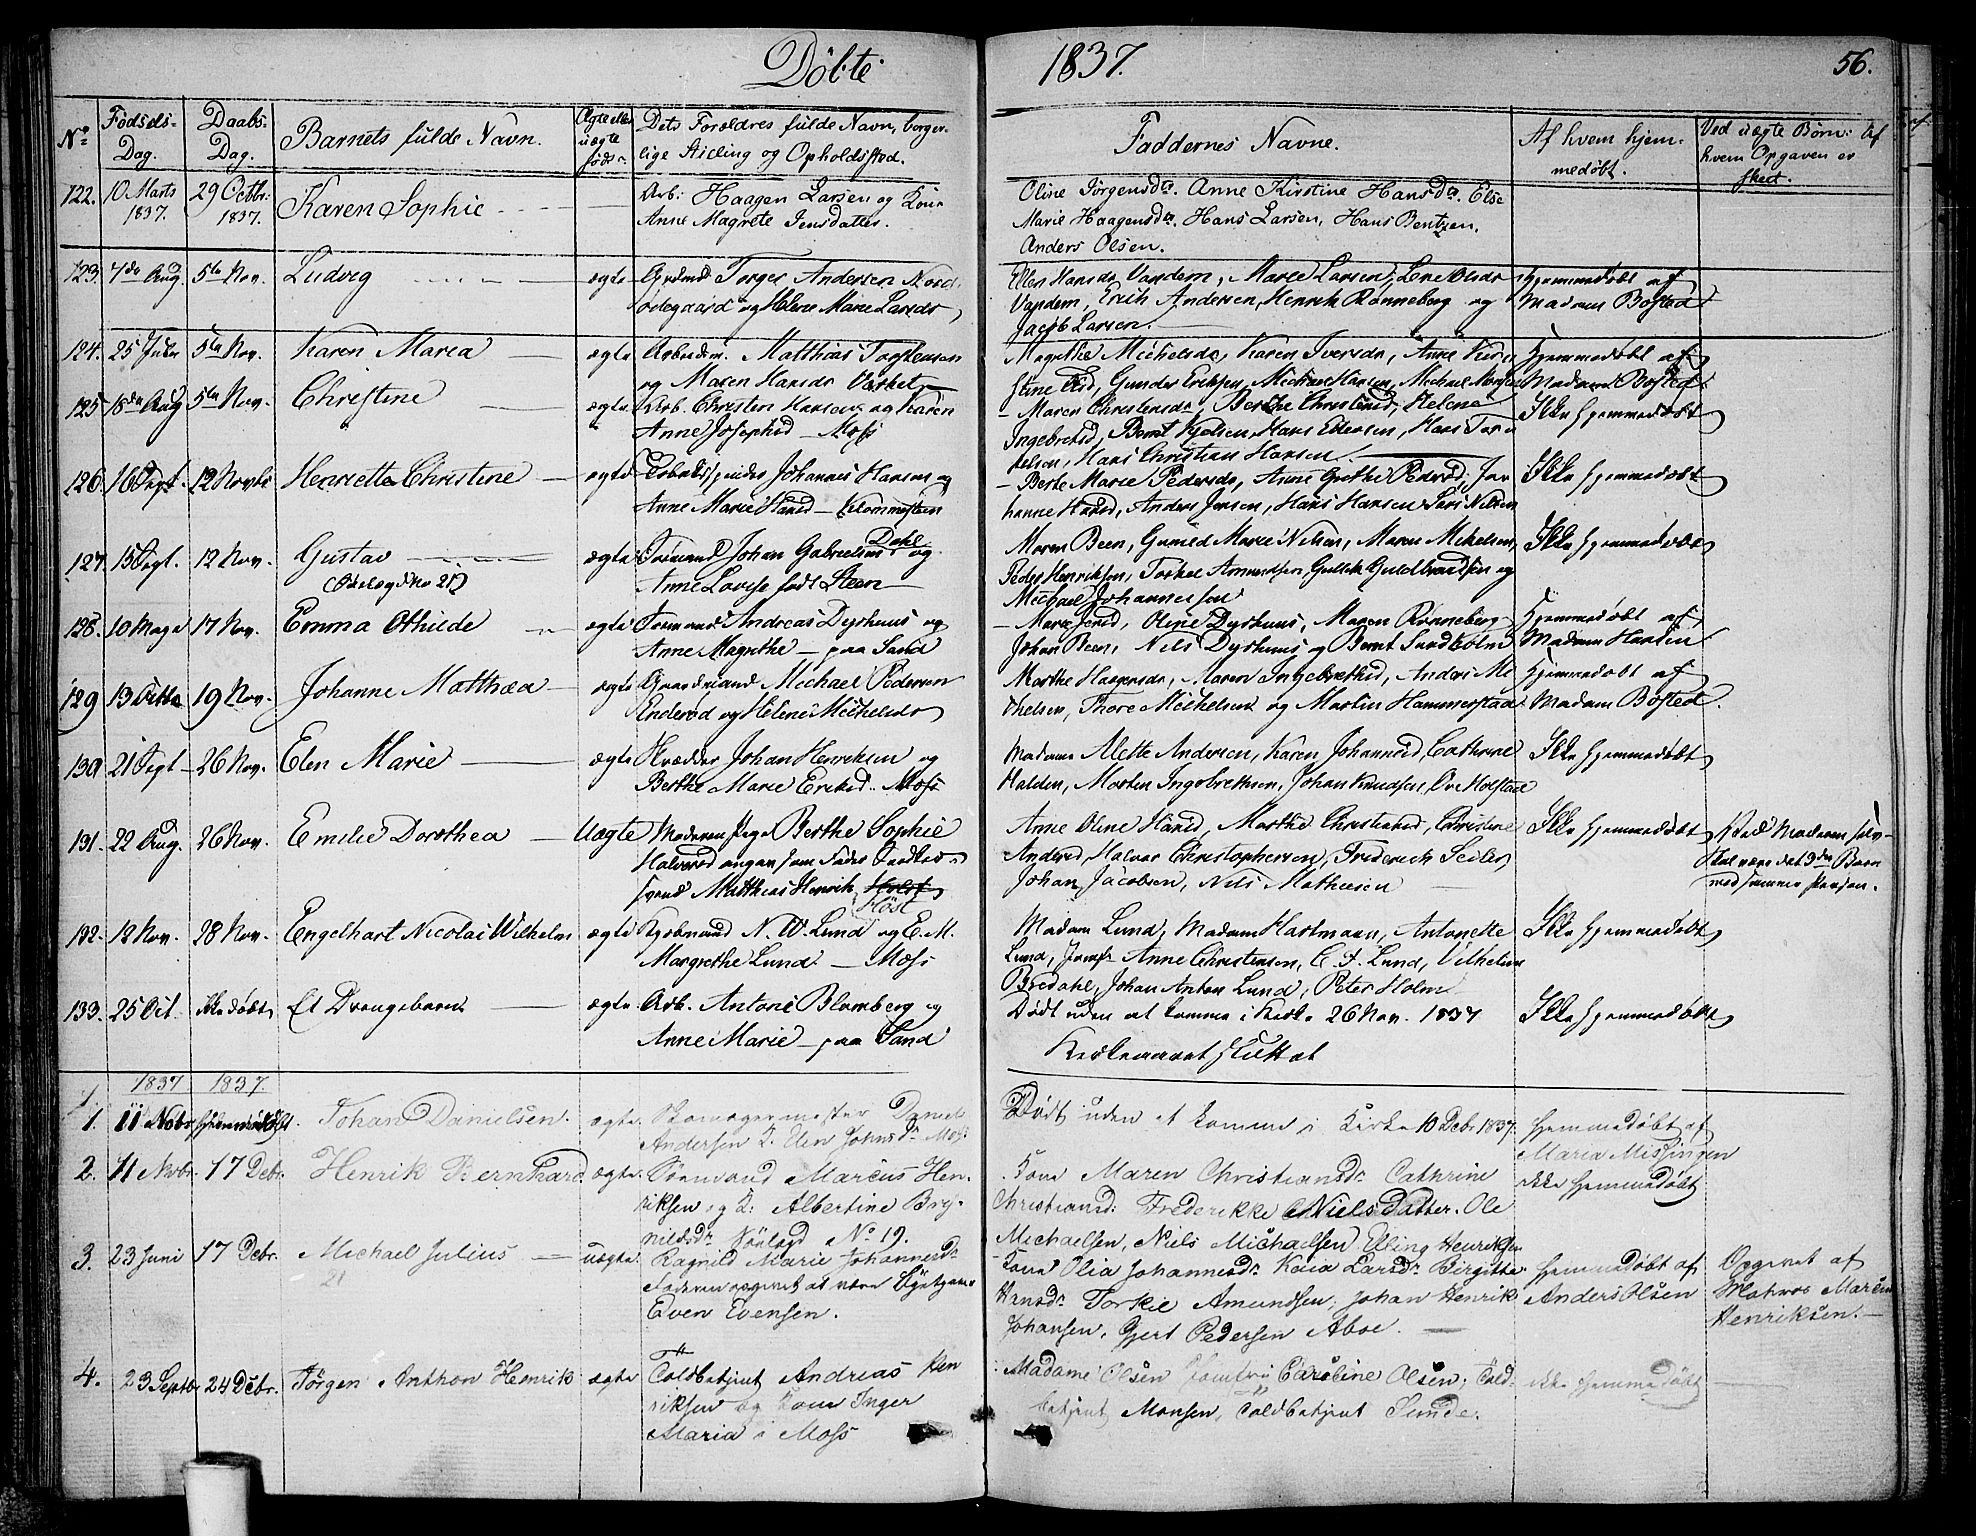 Döbte 1837. 56.
No Födsels-Dag. Daabs-Dag. Barnets fulde Navn. Ægte eller uægte föds. Dets Forældres fulde Navn, borgerlige Stilling og Opholdssted. Faddernes Navne. Af hvem hjemmedöbt. Ved uægte Børn: Af hvem Opgaven er skeet.
122. 10 Marts 1837. 29 Octbr: 1837. Karen Sophie
Arb: Haagen Larsen og Kone
Anne Magrete Jensdatter.
Oline Jørgensdr. Anne Kirstine Hansdr. Else
Marie Haagensdr. Hans Larsen, Hans Bentzen,
Anders Olsen.
123. 7de Aug. 5te Nov. Ludvig ægte Torger Andersen
og Helene Marie Larsdr
Ellen Hansdr Vandem, Maree Larsen, Lene Olsdr
Vandem, Erich Andersen, Henrik Rønneberg og
Jacob Larsen.
Hjemmedøbt af
Madam Bosted
124. 25 5te Nov. Karen Maria ægte Matthias Torstensen
og Maren Hansdr
Magrethe Michelsdr, Karen Iversdr, Anne Kir
stine Gunder Eriksen, Michael Hansen, Michael
Hjemmedøbt af
Madam Bosted
125 18de Aug 5te Nov. Christine ægte Arb. Christen Hansen og Karen
Anne Josephsd Moss
Maren Christensdr, Berthe Christensd, Helene
Ingebretsd, Bernt Kjelsen, Hans Edersen, Hans Tor
kelsen, Hans Christian Hansen
Ikke hjemmedøbt
126. 16 Sept. 12 Novbr Henriette Christine ægte Johannes Hansen og
Anne Marie Hansd
Berte Marie Pedersdr, Anne Grethe Pedersd, Jo
hanne Hansd, Anders Jensen, Hans Hansen Lars Nilsen
Ikke hjemmedøbt
127. 15 Sept. 12 Nov. Gustav ægte Sømand Johan Gabrielsen Dahl og
Anne Lovise født Steen
Maren Been, Gunild Marie Nilsen, Maren Mikelsen,
Peder Henriksen, Torkel Amundsen, Gullik Guldbrandsen og
Michael Johannesen
Ikke hjemmedøbt
128. 10 Maye 17 Nov. Emma Othilde ægte Sømand Andreas Dyrhuus og
Anne Magrethe paa Sand
Olene Dyrhuus, Maren Rønneberg
Johan Been, Nils Dyrhuus og Bernt Sandholm
Hjemmedøbt af
Madam Hansen
129 13 19 Nov. Johanne Matthea ægte Gaardmand Michael Pedersen
Enderød og Helene Michelsdr
Marthe Haagensdr, Maren Ingebrethsd, Anders Mi
chelsen, Thore Michelsen og Martin Hammerstad
Hjemmedøbt af
Madam Bosted.
130 21 Sept 26 Nov. Elen Marie ægte Skrædder Johan Henriksen og
Berthe Marie Eriksd Moss
Madame Alette Andersen, Karen Johannesd, Cathrine
Halden, Morten Ingebrethsen, Johan Knudsen, Ove Holstad
Ikke hjemmedøbt
131. 22 Aug. 26 Nov. Emilie Dorothea Uægte Moderen Pige Berthe Sophie
Halvorsd angav som Fader
Matthias Henrik Holst
Höst
Anne Oline Hansd, Marthe Christensd, Christine
Andersd, Halvor Christophersen, Frederich Seiler,
Johan Jacobsen, Nils Mathiesen
Ikke hjemmedøbt
Moderen selv
Skal være det 3die Barn
med samme Person.
132. 12 Nov. 28 Nov. Engelhart Nicolai Wilhelm ægte Kjøbmand N. W. Lund og E. M.
Margrethe Lund. Moss
Madam Lund, Madam Hartmann, Antonette
Lund, Jomfr Anne Christensen, C. F. Lund, Vilhelm
Bredahl, Johan Anton Lund, Peter Holm
Ikke hjemmedøbt
133. 25 Oct. ikke døbt Et Drengebarn ægte Arb. Antoni Blomberg og
Anne Marie paa Sand
Dødt uden at komme i Kirke 26 Nov. 1837
Ikke hjemmedøbt
Kirkeaaret sluttet
1837 1837.
1. 11 Novbr hjemmedøbt. Johan Danielsen. ægte Skomagermester Daniel
Andersen K. Elen Johnsdr Moss
Dödt uden at komme i Kirke 10 Debr 1837.
Hjemmedøbt af
Maria Missingen
2. 11 Novbr. 17 Debr. Henrik Bernhard ægte Sømand Marcus Hen
riksen og K: Albertine Bry
nildsdr Söelagd No 19.
Kone Maren Christiansdr Cathrine
Christiansd: Frederikke Nielsdatter. Ole
Michaelsen, Niels Michaelsen Elling Henriksen
ikke hjemmedöbt
3. 23 Juni 17 Debr. Michael Julius uægte. Ragnild Marie Johannesdr
Faderen opgivet at være
Even Evensen.
21
Kone Olia Johannesdr Kaia Larsdr Birgitte
Hansdr Torkil Amundsen. Johan Henrik
Johansen, Gjert Pedersen Aboe.
hjemmedöbt af
Anders Olsen
Opgivet af
Matros Marcus
Henriksen.
4. 23 Septbr 24 Debr. Jörgen Anthon Henrik ægte Toldbetjent Andreas Hen
riksen og Kone Inger
Maria i Moss
Madame Olsen Jomfru Caroline Olsen, Told
betjent Monsen, Toldbetjent Sunde.
ikke hjemmedöbt